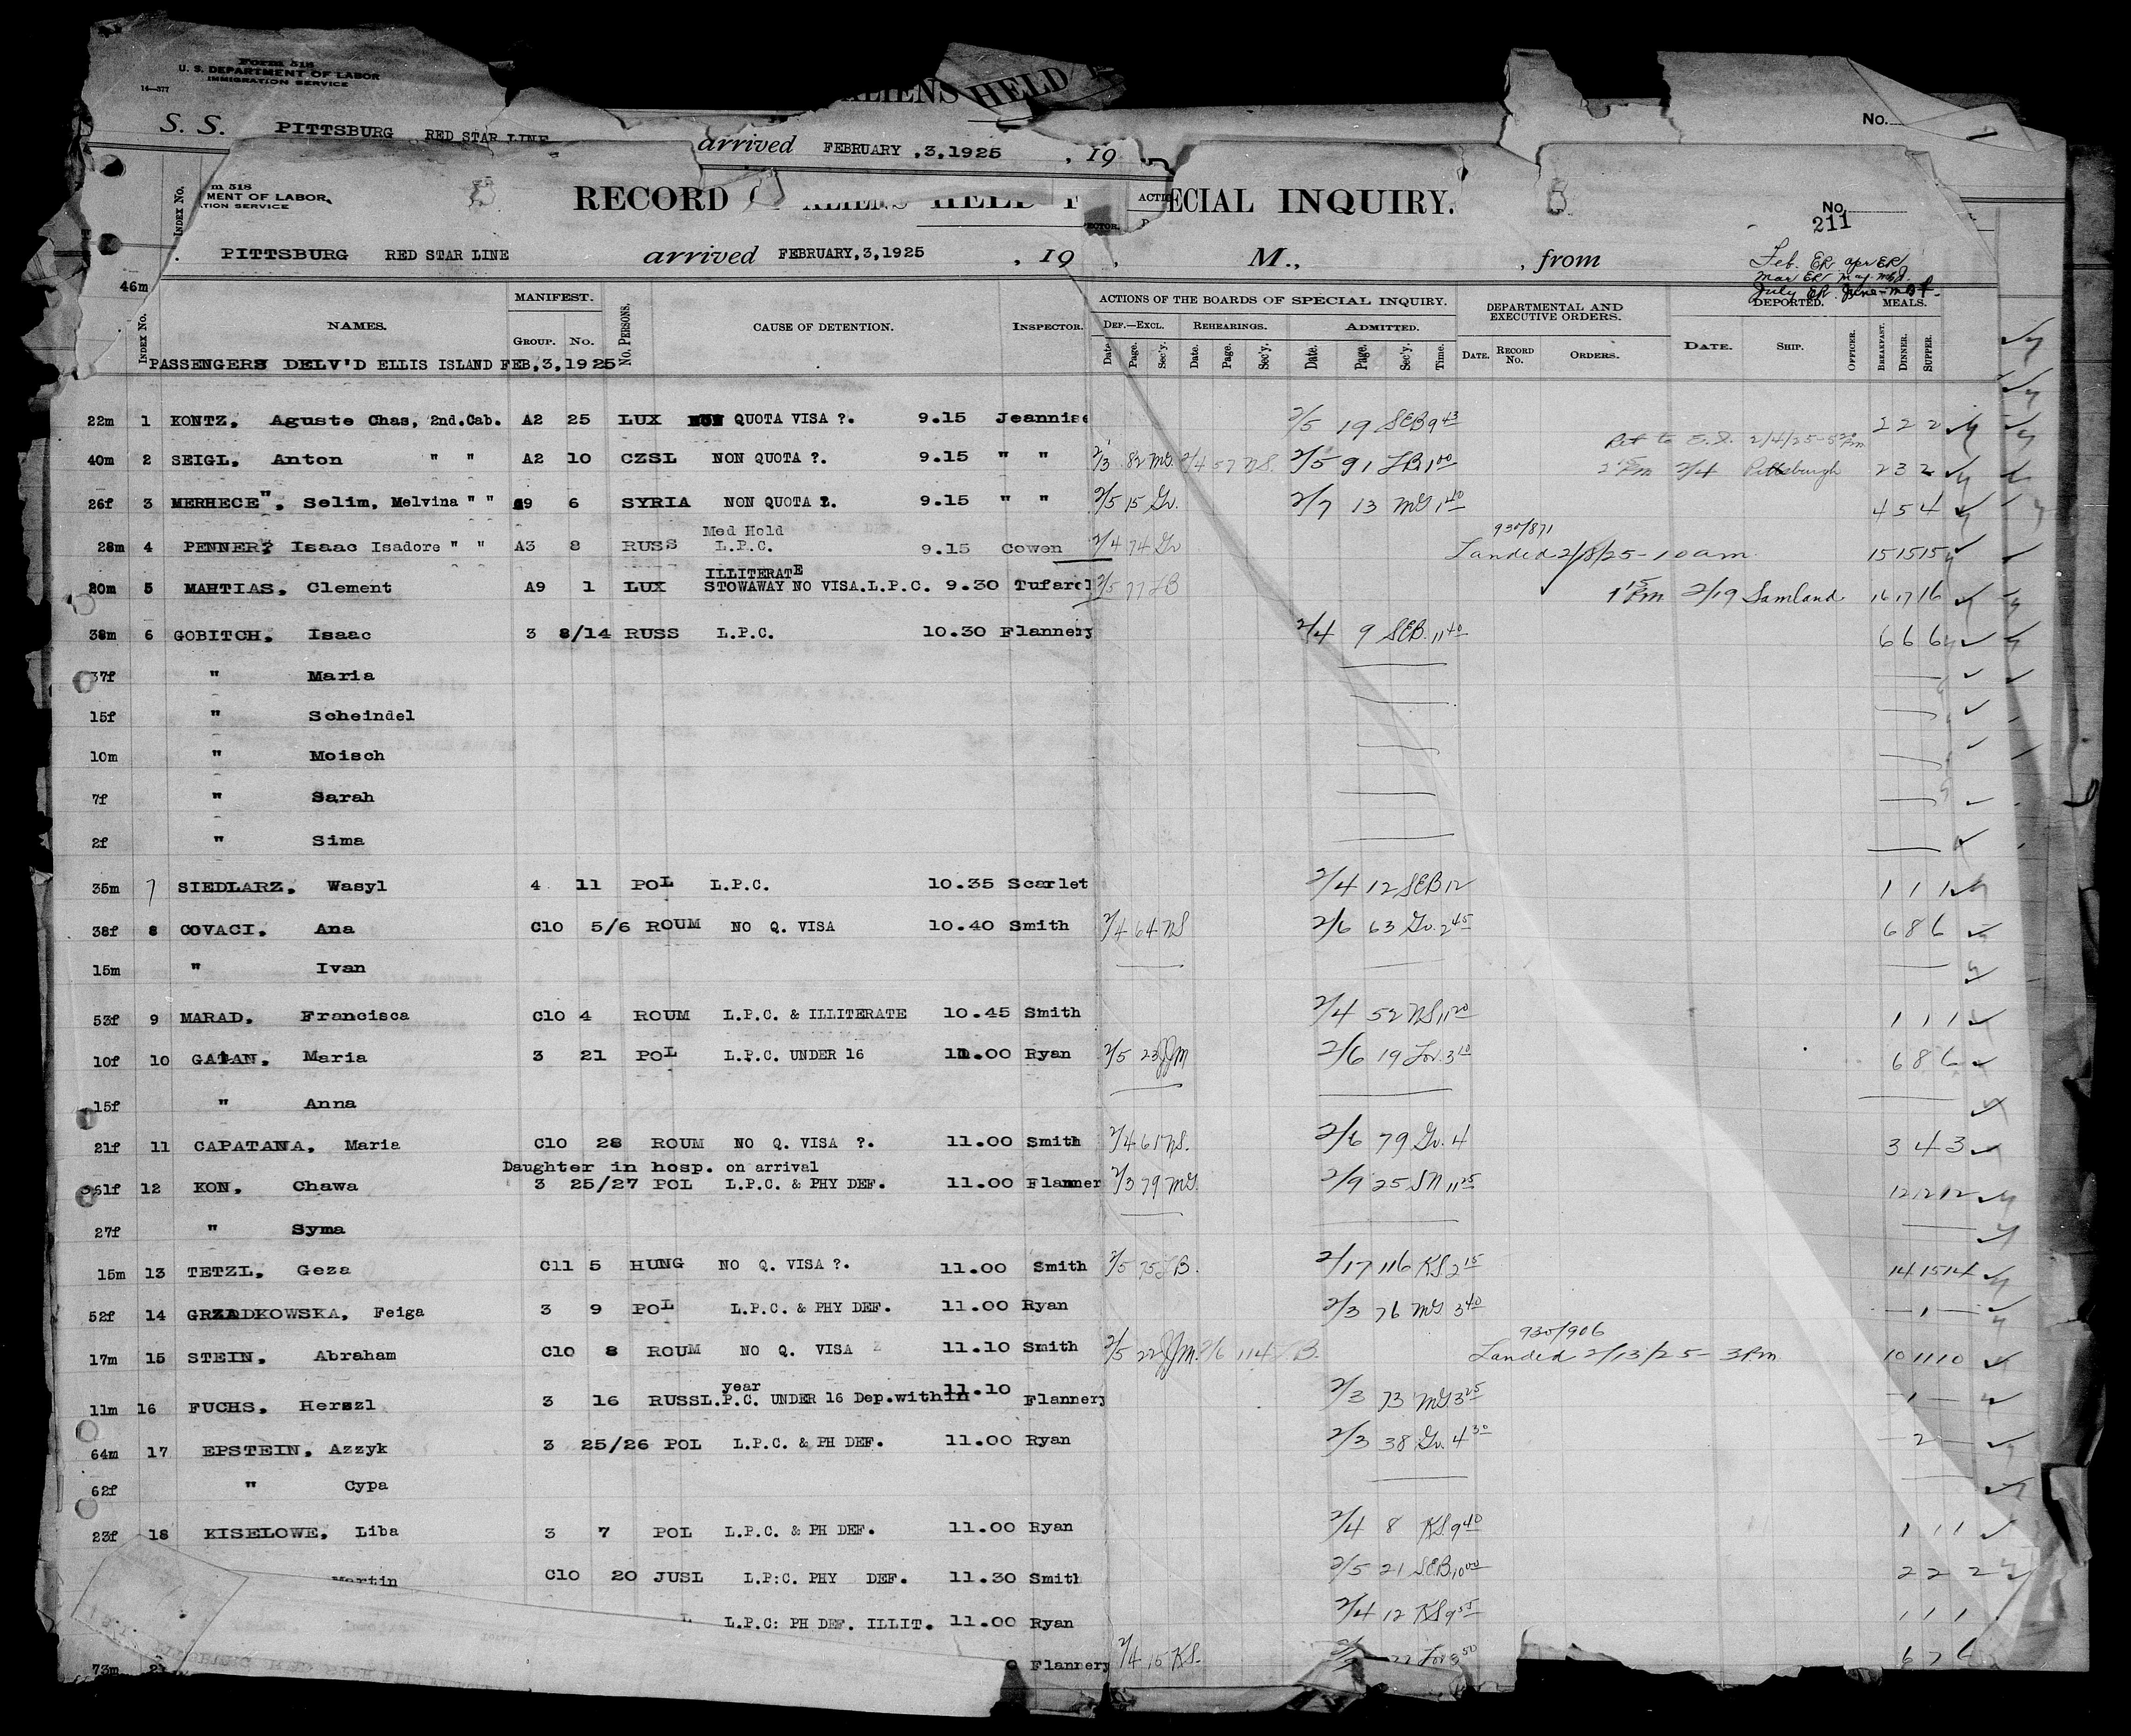 Form 518
U. S. DEPARTMENT OF LABOR
IMMIGRATION SERVICE
14—577
ALIENS HELD
No.
S. S. PITTSBURG RED STAR LINE arrived FEBRUARY ,3,1925 , 19
INDEX No.
m 518
MENT OF LABOR
TION SERVICE
B
RECORD ALIENS HELD F ECIAL INQUIRY.
B
No.
211
PITTSBURG RED STAR LINE arrived FEBRUARY,3,1925 , 19 , M., , from
Feb. ER apr ER
Mar ER May
July ER June
46m
INDEX No. NAMES. MANIFEST. GROUP. No. No. PERSONS. CAUSE OF DETENTION. INSPECTOR. ACTIONS OF THE BOARDS OF SPECIAL INQUIRY. DEPARTMENTAL AND EXECUTIVE ORDERS. DEPORTED. MEALS.
DEF.—EXCL. REHEARINGS. ADMITTED.
Date. Page. Sec'y. Date. Page. Sec'y. Date. Page. Sec'y. Time. DATE. RECORD No. ORDERS. DATE. SHIP. OFFICER. BREAKFAST. DINNER. SUPPER.
PASSENGERS DELV'D ELLIS ISLAND FEB,3,1925
22m 1 KONTZ, Aguste Chas, 2nd.Cab. A2 25 LUX QUOTA VISA ?. 9.15 Jeannise 2/5 19 SEB 9 43 2 2 2
Ret to E.I. 2/4/25-5 Pm
40m 2 SEIGL, Anton " " A2 10 CZSL NON QUOTA ?. 9.15 " " 2/3 82 MG. 2/4 57 NS. 2/5 91 JB 1 00 2 Pm 2/4 Pittsburgh 2 3 2
26f 3 MERHECE", Selim, Melvina " " 9 6 SYRIA NON QUOTA 9.15 " " 2/5 15 Gv. 2/7 13 MG 1 40 4 5 4
Med Hold
930/871
28m 4 PENNER, Isaac Isadore " " A3 8 RUSS L.P.C. 9.15 Cowen 2/4 74 Gv Landed 2/8/25-10 am 15 15 15
ILLITERATE
20m 5 MAHTIAS, Clement A9 1 LUX STOWAWAY NO VISA.L.P.C. 9.30 Tufarol 2/5 77 JB 1 15 Pm 2/19 Samland 16 17 16
38m 6 GOBITCH, Isaac 3 8/14 RUSS L.P.C. 10.30 Flannery 2/4 9 SEB. 11 40 6 6 6
37f " Maria
15f " Scheindel
10m " Moisch
7f " Sarah
2f " Sima
35m 7 SIEDLARZ, Wasyl 4 11 POL L.P.C. 10.35 Scarlet 2/4 12 SEB 12 1 1 1
38f 8 COVACI, Ana C10 5/6 ROUM NO Q. VISA 10.40 Smith 2/4 64 NS 2/6 63 Gv. 2 45 6 8 6
15m " Ivan
53f 9 MARAD, Francisca C10 4 ROUM L.P.C. & ILLITERATE 10.45 Smith 2/4 52 NS 11 20 1 1 1
10f 10 GATAN, Maria 3 21 POL L.P.C. UNDER 16 11.00 Ryan 2/5 23 JJM 2/6 19 Lov. 3 10 6 8 6
15f " Anna
21f 11 CAPATANA, Maria C10 28 ROUM NO Q. VISA ?. 11.00 Smith 2/4 61 NS. 2/6 79 Gv. 4 3 4 3
Daughter in hosp. on arrival
61f 12 KON, Chawa 3 25/27 POL L.P.C. & PHY DEF. 11.00 Flanner 2/3 79 MG. 2/9 25 SN 11 25 12 12 12
27f " Syma
15m 13 TETZL, Geza C11 5 HUNG NO Q. VISA ?. 11.00 Smith 2/5 75 JB. 2/17 116 KS 2 15 14 15 14
52f 14 GRZADKOWSKA, Feiga 3 9 POL L.P.C. & PHY DEF. 11.00 Ryan 2/3 76 MG 3 40 — 1 —
930/906
17m 15 STEIN, Abraham C10 8 ROUM NO Q. VISA 11.10 Smith 2/5 22 JJM. 2/6 114 JB. Landed 2/13/25- 3 Pm. 10 11 10
year
11m 16 FUCHS, Herszl 3 16 RUSS L.P.C. UNDER 16 Dep.within 11.10 Flannery 2/3 73 MG 3 25 — 1 —
64m 17 EPSTEIN, Azzyk 3 25/26 POL L.P.C. & PH DEF. 11.00 Ryan 2/3 38 Gv. 4 30 — 2 —
62f " Cypa
23f 18 KISELOWE, Liba 3 7 POL L.P.C. & PH DEF. 11.00 Ryan 2/4 8 KS. 9 40 1 1 1
Martin C10 20 JUSL L.P:C. PHY DEF. 11.30 Smith 2/5 21 SEB 10 00 2 2 2
L.P.C: PH DEF. ILLIT. 11.00 Ryan 2/4 12 KS 9 55 1 1 1
73m 21 Flannery 2/4 15 KS. Lov 3 50 6 7 6